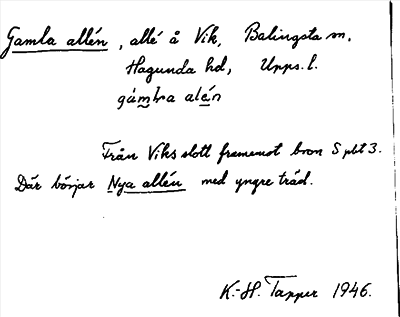 Gamla allén, allé å Vik, Balingsta sn,
Hagunda hd, Upps. l.
gám̲la alé̲n
Från Viks slott framemot bron S pkt 3.
Där börjar Nya allén med yngre träd.
K.-H. Tapper 1946.